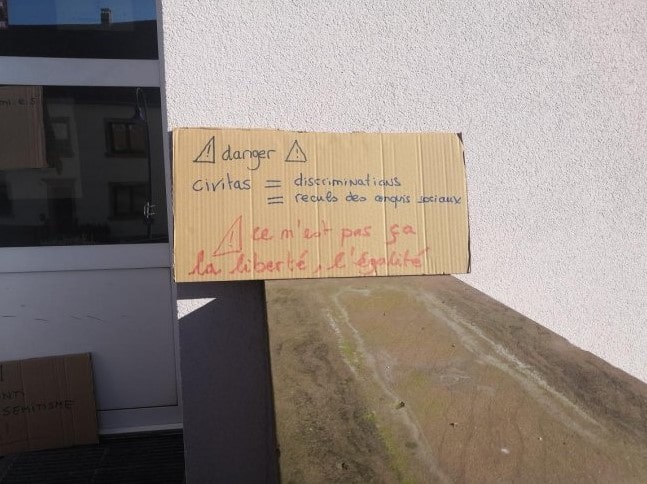 ⚠ danger ⚠
civitas = discriminations
= reculs des acquis sociaux
⚠ ce n'est pas ça
la liberté, l'égalité
ANTI
SEMITISME